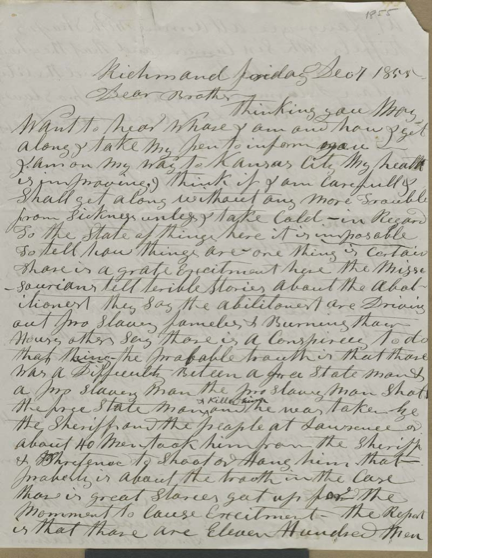 1855
Richmond friday Dec 7 1855
Dear Brother
Thinking you May
Want to hear Whare I am and how I get
along I take My pen to inform you
I am on My way to Kansas City My health
is improveing I think if I am Carefull I
Shall get along without any More Trouble
from Sickness unless I take Cold - in Regard
to the State of things here it is imposable
to tell how things are one thing is Certain
thare is a grate Excitement here the Misse
-sourians tell terible Stories about the Abol-
itionest they Say the abilitionest are Driving
out pro Slavery families & Burning thair
Houses others Say thare is a Conspiricy to do
that the probable trouth is that thare
was a Difficulty Biteen a free State man &
a pro Slavery man the pro Slavery Man Shot
the free State Man & Killed him and he was taken by
the Sheriff and the people at Lawrence or
about 40 Men took him from the Sheriff
& thretened to Shoot or Hang him that
probebly is about the trooth in the Case
thare is great Stories got up for the
Momment to Cause Excitment - the Report
is that thare are Eleven Hundred Men